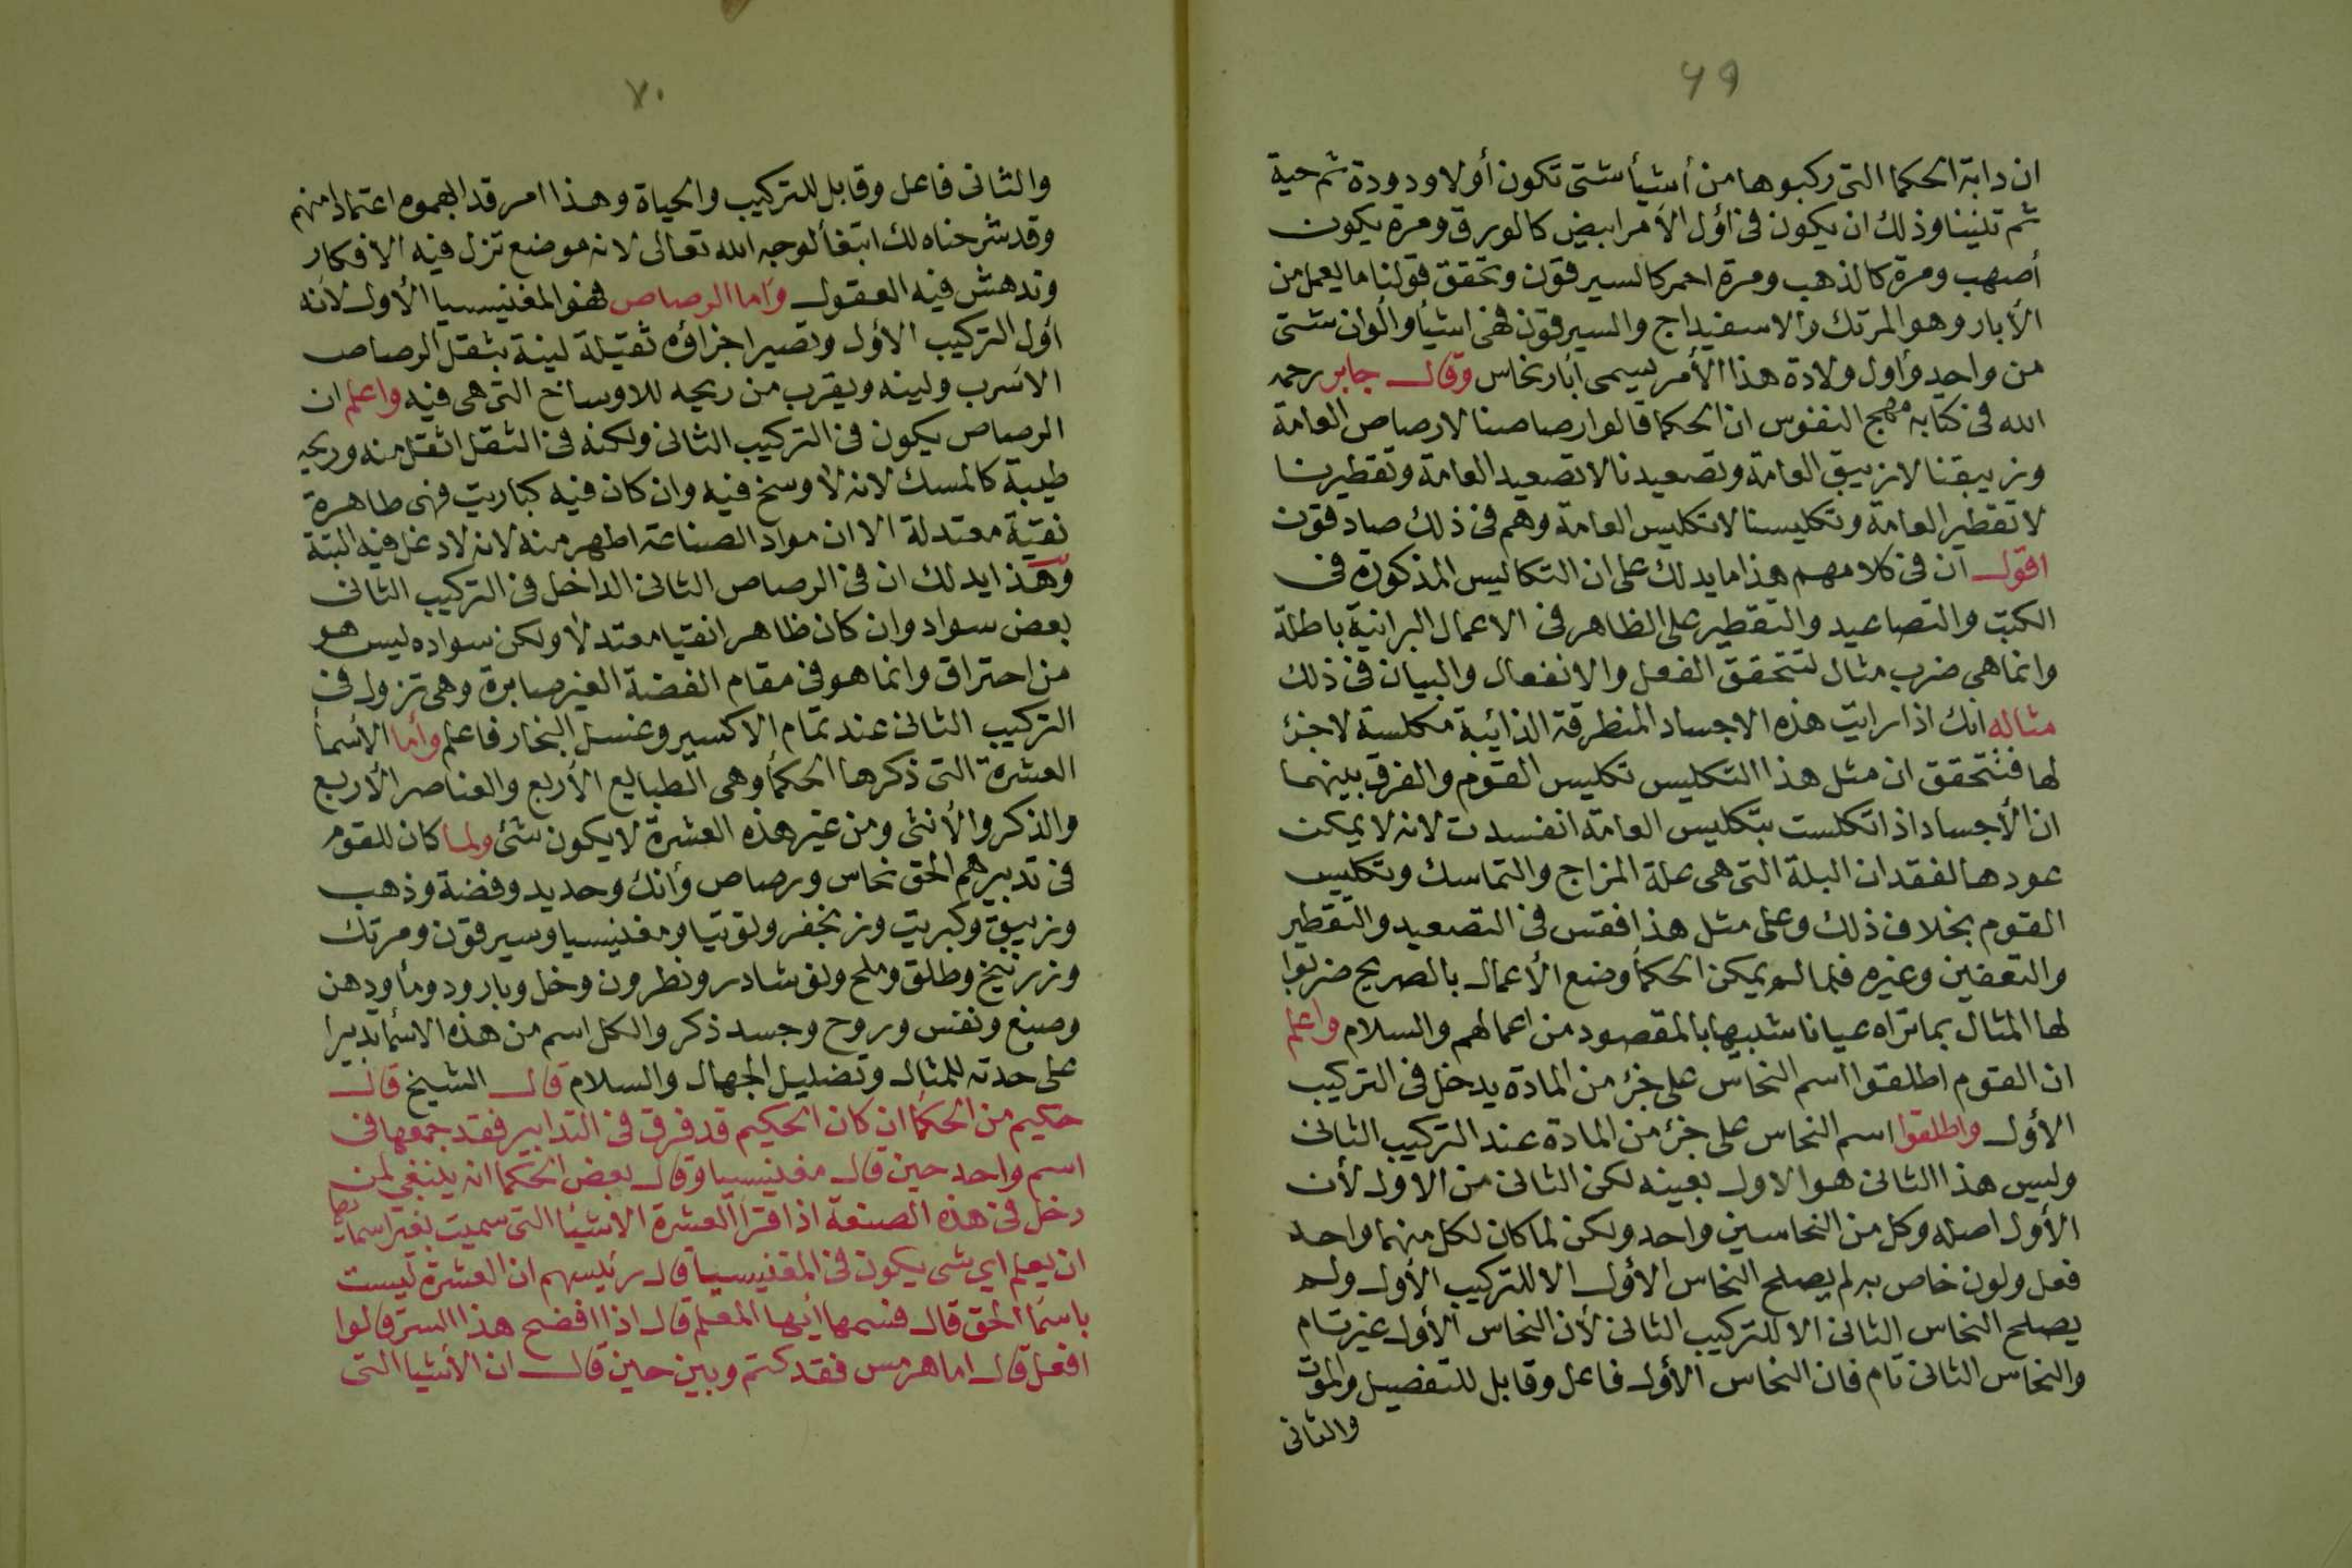 ٦٩
ان دابة الحكما التى ركبوها من أشيأ شتى تكون أولا ودودة ثم حية
ثم تنينا وذلك ان يكون فى اؤل الأمر ابيض كالورق ومرة يكون
أصهب ومرة كالذهب ومرة احمر كالسيرقون وتحقق قولنا ما يعمل من
الأبار وهو المرتك والاسفيداج والسيرقون فهى اشيأ والوان شتى
من واحد وأول ولادة هذا الأمر يسمى ابار نحاس وقال جابر رحمه
الله فى كتابه مهج النفوس ان الحكما قالوا رصاصنا لا رصاص العامة
وزيبقنا لا زيبق العامة وتصعيدنا لا تصعيد العامة وتقطيرنا
لا تقطير العامة وتكليسنا لا تكليس العامة وهم فى ذلك صادقون
اقول ان فى كلامهم هذا ما يدلك على ان التكاليس المذكورة فى
الكتب والتصاعيد والتقطير على الظاهر فى الاعمال البرانية باطلة
وانما هى ضرب مثال لتتحقق الفعل والانفعال والبيان فى ذلك
مثاله انك اذا رايت هذه الاجساد المنطرقة الذائبة مكلسة لا جزئ
لها فتتحقق ان مثل هذا التكليس تكليس القوم والفرق بينهما
ان الأجساد اذا تكلست بتكليس العامة انفسدت لانه لا يمكن
عودها لفقدان البلة التى هى علة المزاج والتماسك وتكليس
القوم بخلاف ذلك وعلى مثل هذا فقس فى التصعيد والتقطير
والتعفين وغيره فلما لم يمكن الحكمأ وضع الأعمال بالصريح ضربوا
لها المثال بما تراه عيانا شبيها بالمقصود من اعمالهم والسلام واعلم
ان القوم اطلقوا اسم النحاس على جزئ من المادة يدخل فى التركيب
الأول واطلقوا اسم النحاس على جزئ من المادة عند التركيب الثانى
وليس هذا الثانى هو الاول بعينه لكن الثانى من الاول لأن
الأول اصله وكل من النحاسين واحد ولكن لما كان لكل منهما واحد
فعل ولون خاص به لم يصلح النحاس الأول الا للتركيب الأول ولم
يصلح النحاس الثانى الا للتركيب الثانى لأن النحاس الأول غير تام
والنحاس الثانى تام فان النحاس الأول فاعل وقابل للتفصيل والموت
والثانى
٧٠
والثانى فاعل وقابل للتركيب والحياة وهذا امر قد ابهموه اعتمادا منهم
وقد شرحناه لك ابتغأ لوجه الله تعالى لانه موضع تزل فيه الافكار
وتدهش فيه العقول واما الرصاص فهو المغنيسيا الأول لأنه
أول التركيب الأول وتصير اجزاؤه ثقيلة لينة بثقل الرصاص
الاسرب ولينه ويقرب من ريحه للاوساخ التى هى فيه واعلم ان
الرصاص يكون فى التركيب الثانى ولكنه فى الثقل اثقل منه وريحه
طيبة كالمسك لانه لا وسخ فيه وان كان فيه كباريت فهى طاهرة
نقية معتدلة الا ان مواد الصناعة اطهر منه لانه لا دغل فيه البتة
وهذا يدلك ان فى الرصاص الثانى الداخل فى التركيب الثانى
بعض سواد وان كان ظاهرا نقيا معتدلا ولكن سواده ليس هو
من احتراق وانما هو فى مقام الفضة الغير صابرة وهى تزول فى
التركيب الثانى عند تمام الاكسير وغسل البخار فاعلم وأما الأسمأ
العشرة التى ذكرها الحكمأ وهى الطبايع الأربع والعناصر الأربع
والذكر والأنثى ومن غير هذه العشرة لا يكون شئ ولما كان للقوم
فى تدبيرهم الحق نحاس ورصاص وأنك وحديد وفضة وذهب
وزيبق وكبريت وزنجفر وتوتيا ومغنيسيا وسيرقون ومرتك
وزرنيخ وطلق وملح ونوشادر ونطرون وخل وبارود ومأ ودهن
وصبغ ونفس وروح وجسد ذكر والكل اسم من هذه الاسمأ تدبيرا
على حدته للمثال وتضليل الجهال والسلام قال الشيخ قال
حكيم من الحكمأ ان كان الحكيم قد فرق فى التدابير فقد جمعها فى
اسم واحد حين قال مغنيسيا وقال بعض الحكما انه ينبغي لمن
دخل فى هذه الصنعة اذا قرا العشرة الاشيأ التى سميت بغير اسمايها
ان يعلم اي شى يكون فى المغنيسيا قال رئيسهم ان العشرة ليست
باسمأ الحق قال فسمها أيها المعلم قال اذا افضح هذا السر قالوا
افعل قال اما هرمس فقد كتم وبين حين قال ان الأشيا التى